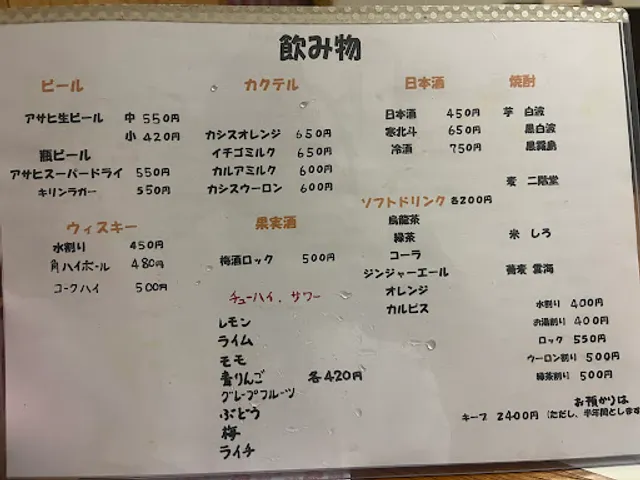 飲み物
ビール
アサヒ生ビール 中 550円
小 420円
瓶ビール
アサヒスーパードライ 550円
キリンラガー 550円
ウィスキー
水割り 450円
角ハイボール 480円
コークハイ 500円
カクテル
カシスオレンジ 650円
イチゴミルク 650円
カルアミルク 600円
カシスウーロン 600円
果実酒
梅酒ロック 500円
チューハイ、サワー
レモン
ライム
モモ
青りんご 各420円
グレープフルーツ
ぶどう
梅
ライチ
日本酒
日本酒 450円
寒北斗 650円
冷酒 750円
ソフトドリンク 各200円
烏龍茶
緑茶
コーラ
ジンジャーエール
オレンジ
カルピス
焼酎
芋 白波
黒白波
黒霧島
麦 二階堂
米 しろ
蕎麦 雲海
水割り 400円
お湯割り 400円
ロック 550円
ウーロン割り 500円
緑茶割り 500円
お預かりは
キープ 2400円 (ただし、半年間とします